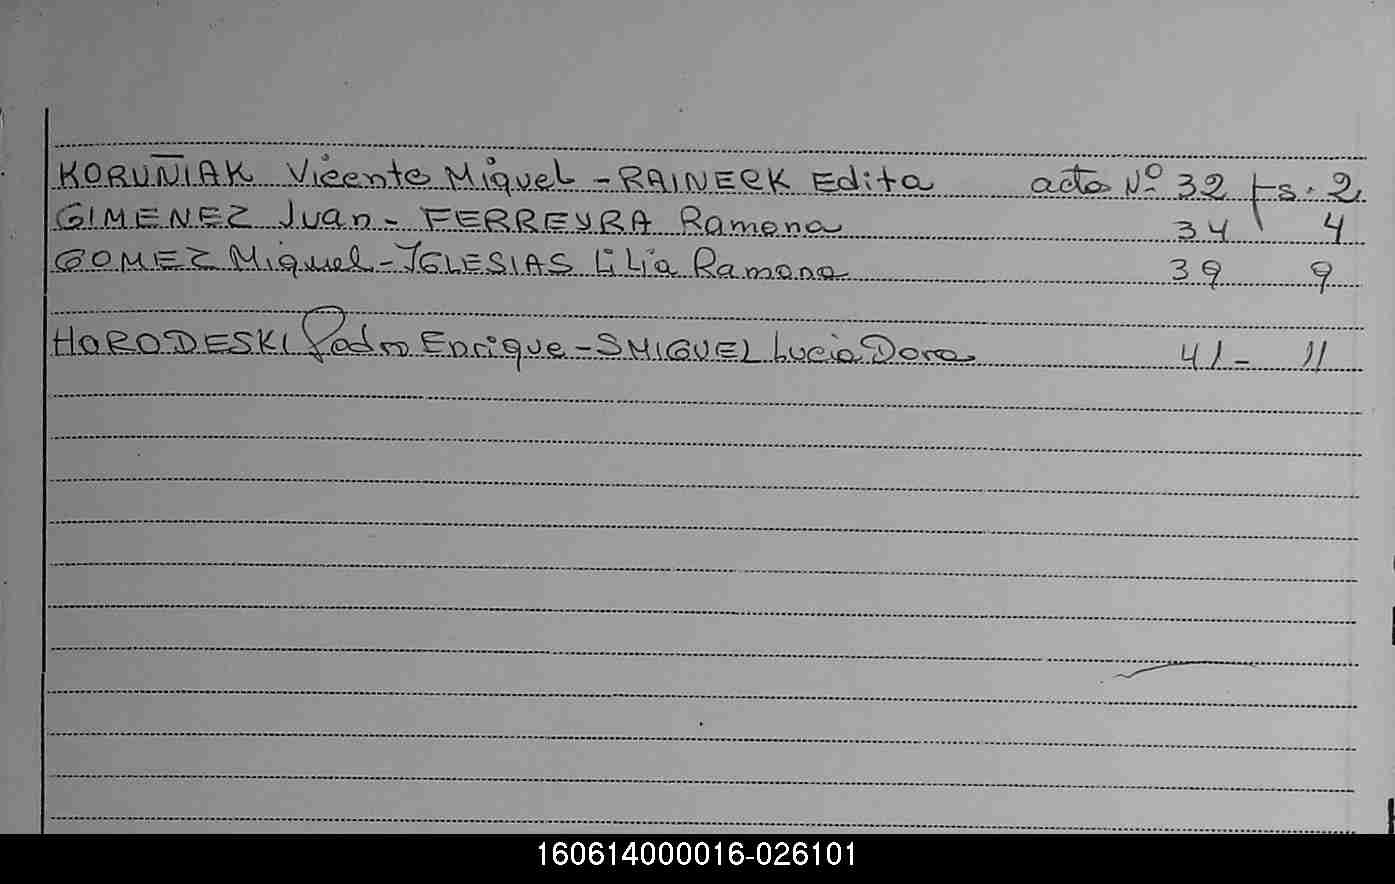 KORUÑIAK Vicente Miguel - RAINERK Edita acta Nº 32 fs. 2
GIMENEZ Juan - FERREYRA Ramona 34 4
GOMEZ Miguel - IGLESIAS Lilia Ramona 39 9
HORODESKI Pedro Enrique - SMIGUEL Lucia Dora 41 - 11
160614000016-026101